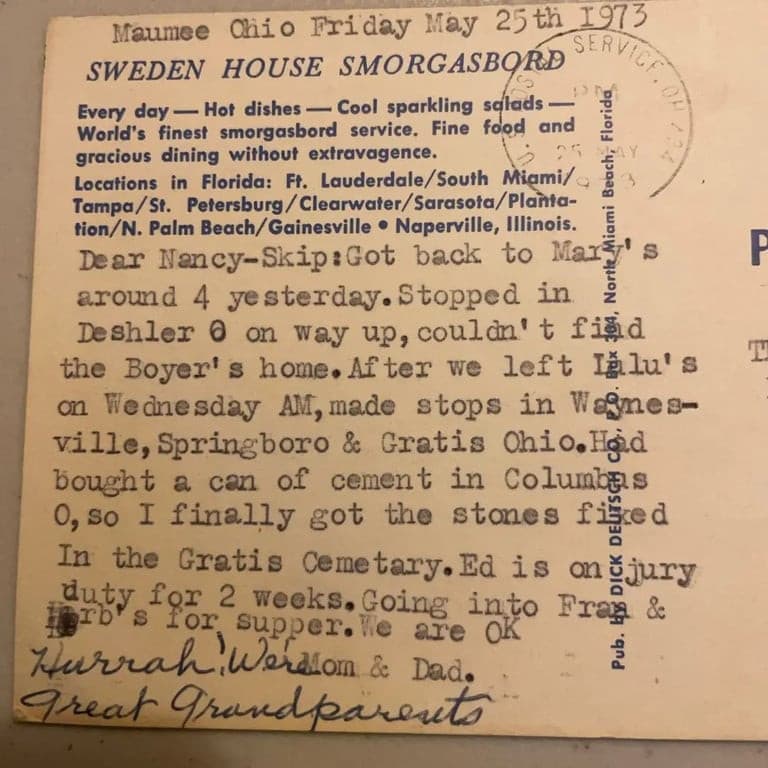 Maumee Ohio Friday May 25th 1973
SWEDEN HOUSE SMORGASBORD
Every day — Hot dishes — Cool sparkling salads —
World's finest smorgasbord service. Fine food and
gracious dining without extravagence.
Locations in Florida: Ft. Lauderdale/South Miami/
Tampa/St. Petersburg/Clearwater/Sarasota/Planta-
tion/N. Palm Beach/Gainesville • Naperville, Illinois.
Dear Nancy-Skip:Got back to Mary's
around 4 yesterday.Stopped in
Deshler O on way up,couldn't find
the Boyer's home.After we left Lulu's
on Wednesday AM,made stops in Waynes-
ville,Springboro & Gratis Ohio.Had
bought a can of cement in Columbus
O,so I finally got the stones fixed
In the Gratis Cemetary.Ed is on jury
duty for 2 weeks.Going into Fran &
Herb's for supper.We are OK
Mom & Dad.
Hurrah! We're
Great Grandparents
Pub. by DICK DEUTSCH CO., P.O. Box 394, North Miami Beach, Florida
U.S. POSTAL SERVICE, OH
PM
25 MAY
P